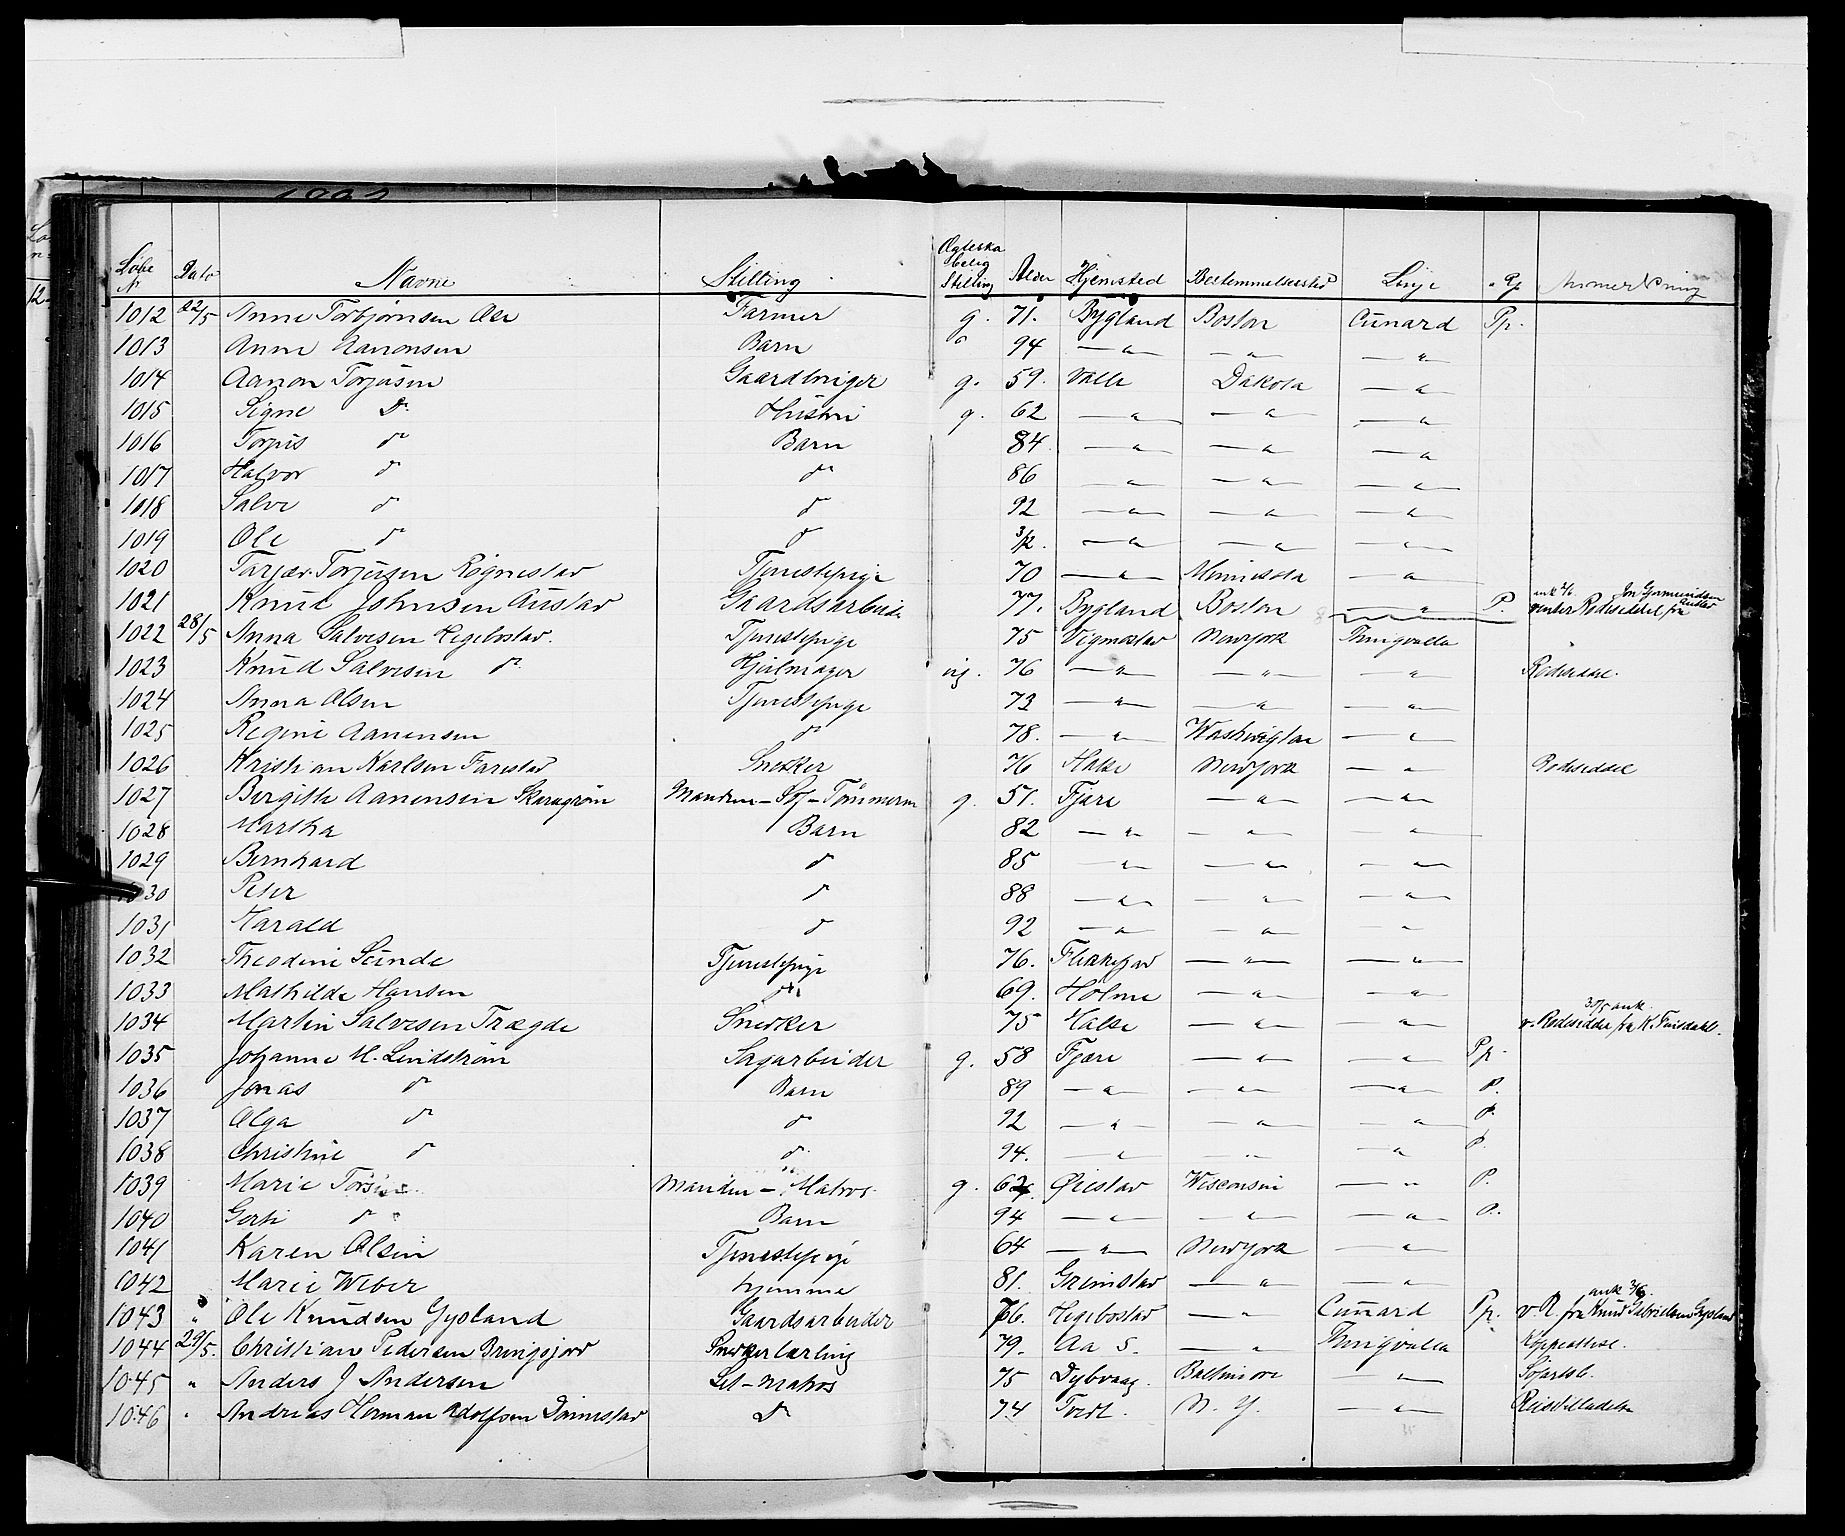 Løbe Nr Dato Navne Stilling Ægteskabelig Stilling Alder Hjemsted Bestemmelsessted Linje Anmerkning
1012 22/5 Anne Torbjørnsen Ose Farmer g. 71. Bygland Boston Cunard Pp.
1013 Anne Aanonsen Barn 94 — " — — " — — " —
1014 Aanon Torjusen Gaardbruger g. 59. Valle Dakota — " —
1015 Signe Do Hustru g. 62 — " — — " — — " —
1016 Torjus do Barn 84 — " — — " — — " —
1017 Halvor do do 86 — " — — " — — " —
1018 Salve do do 92 — " — — " — — " —
1019 Ole do do 3/12. — " — — " — — " —
1020 Tarjer Torjusen Rognestad Tjenestepige 70 — " — Minnesota — " —
1021 Knut Johnsen Austad Gaardsarbeider 77. Bygland Boston — " — P. venter Rodeseddel fra
1022 28/5 Anna Salvesen Hegebostad. Tjenestepige 75 Vigmostad Newyork Thingvalla
1023 Knud Salvesen do Hjulmager ug. 76 — " — — " — — " — Rodeseddel.
1024 Anna Olsen Tjenestepige 73 — " — — " — — " —
1025 Regine Aanensen do 78. — " — Washington — " —
1026 Kristian Karlsen Farestad Snekker 76 Halse Newyork — " — Rodeseddel
1027 Bergith Aanensen Skaregrøm Manden – Tømmerm g. 51. Fjære — " — — " —
1028 Martha Barn 82 — " — — " — — " —
1029 Bernhard do 85 — " — — " — — " —
1030 Peter do 88 — " — — " — — " —
1031 Harald do 92 — " — — " — "
1032 Theodine Sunde Tjenestepige 76. Flekkefjord — " — — " —
1033 Mathilde Hansen do 69. Holme — " — — " —
1034 Martin Salvesen Trægde Snedker 75 Halse — " — — " — 30/5 ank. v. Rodeseddel fra K. Finsdahl.
1035 Johanne M. Lindstrøm Sagarbeider g. 58 Fjære — " — — " — Pp.
1036 Jonas do Barn 89 — " — — " — — " — P.
1037 Olga do do 92 — " — — " — — " — P.
1038 Christine do do 94. — " — " — " — P.
1039 Marie Manden – Matros. g. 62 Øiestad Wisconsin — " P.
1040 do Barn 94 — " — — " — — " — P.
1041 Karen Olsen Tjenestepige 64 — " — Newyork — " —
1042 Marie Weber hjemme 81. Grimstad — " — — " —
1043 " Ole Knudsen Gysland Gaardsarbeider 76. Hegebostad — " Cunard Pp. ank 3/6. v R. fra Knud Gabrielsen Gysland
1044 29/5. Christian Pedersen Bringsjord Snekkerlærling 79. Aa S. — " Thingvalla Koppeattest.
1045 " Anders J Andersen Let-matros 75 Dybvaag. Baltimore — " — Søfartsb.
1046 " Andreas Herman Adolfsen Dømmestad Do 74 Tvedt. N. Y. — " — Reisetilladelse